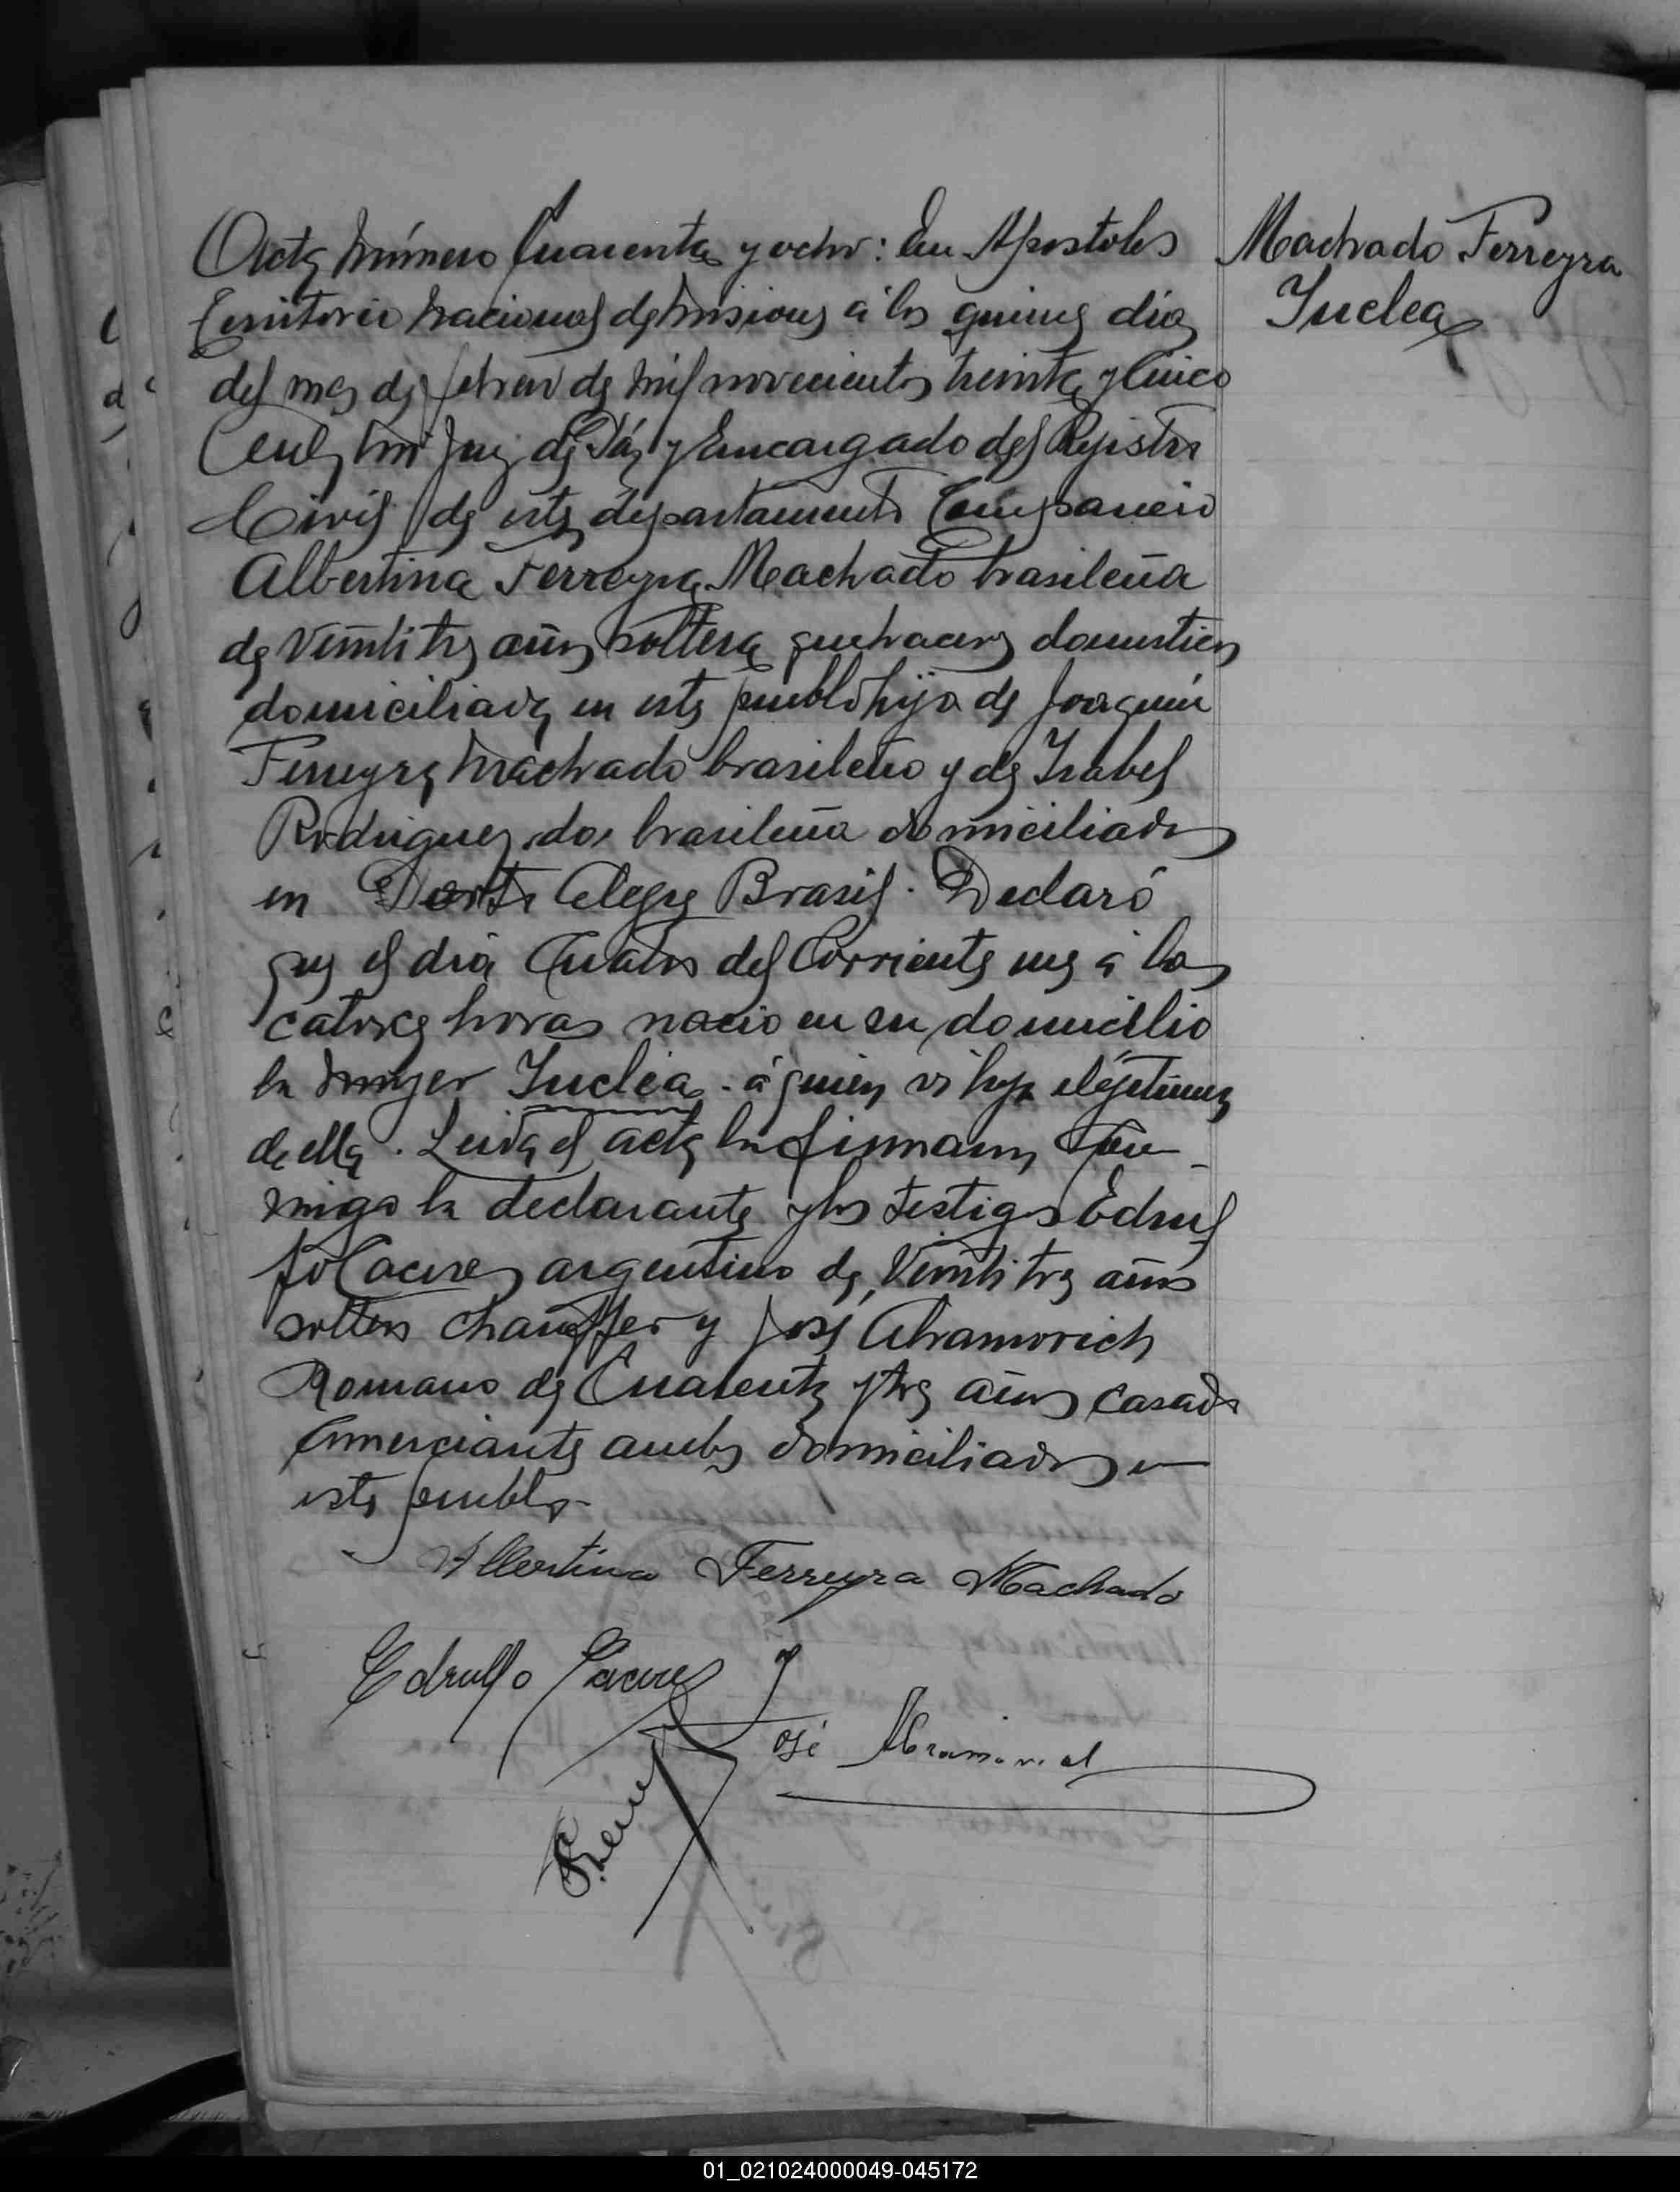 Acta número Cuarenta y ocho: En Apostoles
Territorio Nacional de Misiones á los quince dias
del mes de febrero de mil novecientos treinta y Cinco
ante mi Juez de Páz y Encargado del Registro
Civil de este departamento Compareció
Albertina Ferreyra Machado brasileña
de Veintitres años soltera quehaceres domesticos
domiciliada en este pueblo hija de Joaquin
Ferreyra Machado brasileño y de Isabel
Rodriguez brasileña domiciliados
en Porto Alegre Brasil. Declaró
que el dia Cuatro del Corriente mes á las
catorce horas nacio en su domicilio
la mujer Iuclea. á quien es hija
de ella. Leida el acta la firmaron Con-
migo la declarante y los testigos Ednul
fo Caceres argentino de Veintitres años
soltero chauffer y José Abramovich
Romano de Cuarenta y tres años Casado
Comerciante ambos domiciliados en
este pueblo-
Albertina Ferreyra Machado
Caceres
José
Machado Ferreyra
Iuclea
01_021024000049-045172